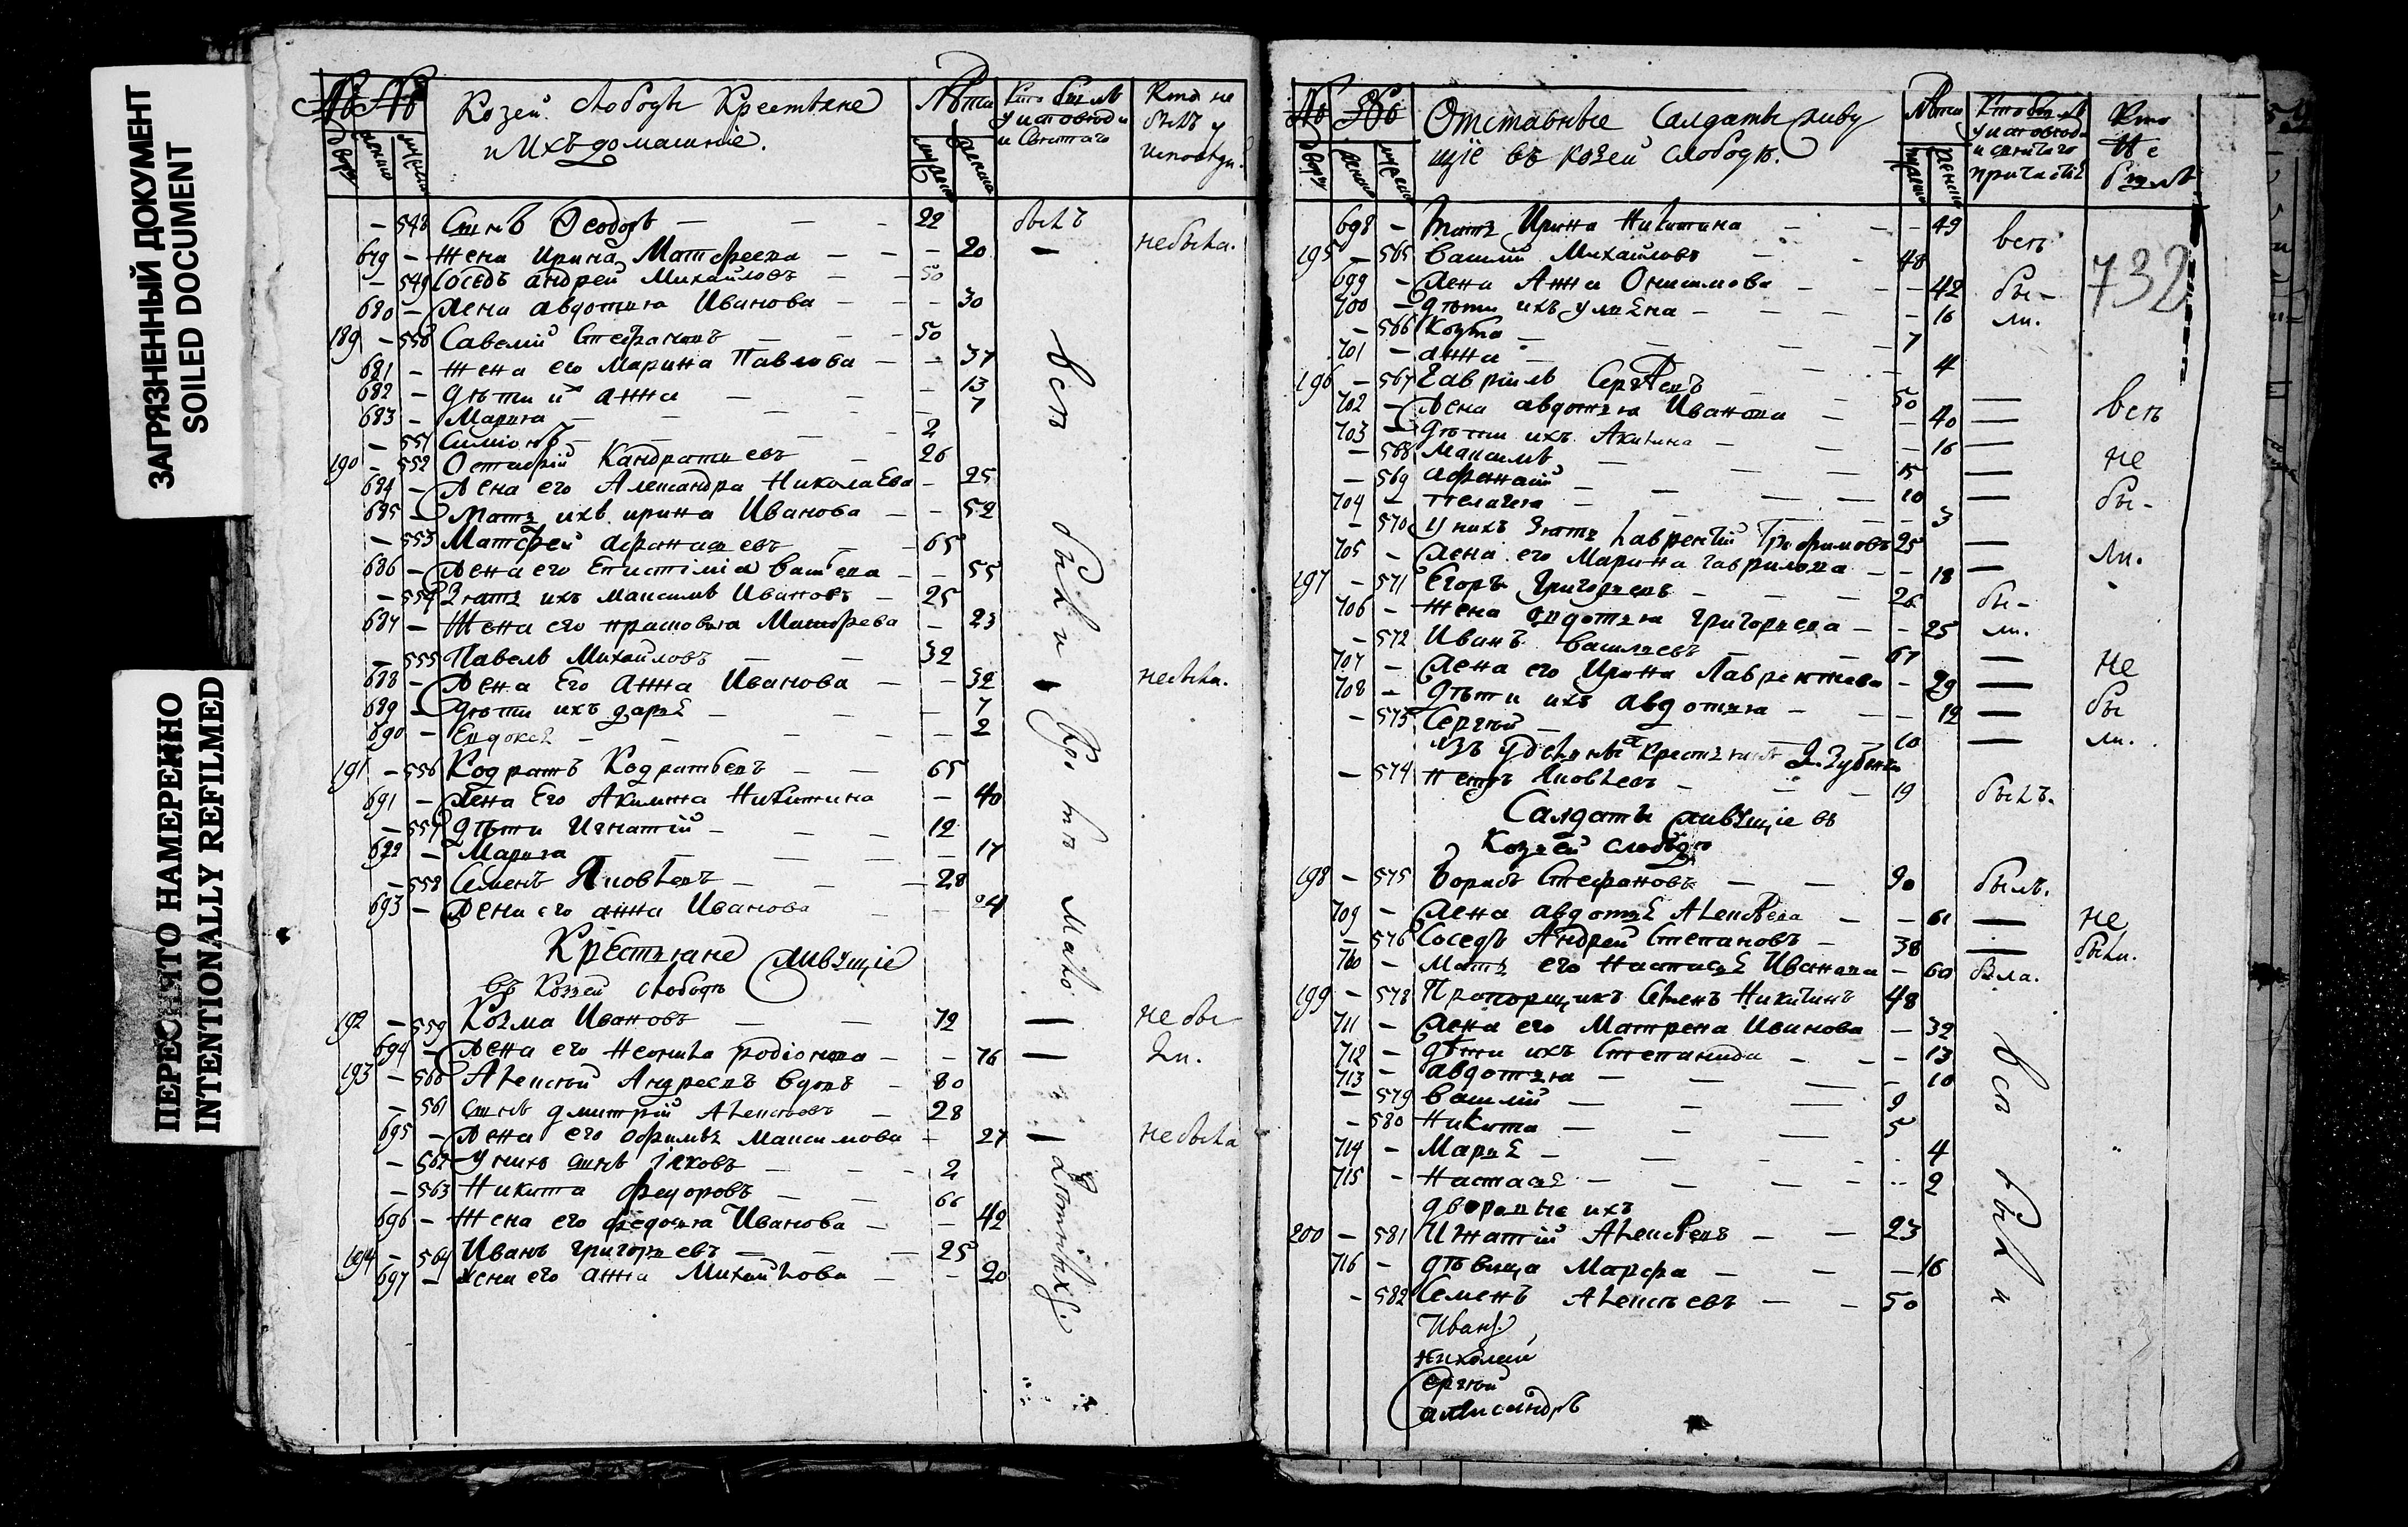 ЗАГРЯЗНЕННЫЙ ДОКУМЕНТ
SOILED DOCUMENT
ПЕРЕСНЯТО НАМЕРЕННО
INTENTIONALLY REFILMED
Козей слободы Крестьяне
и Ихъ домашніе.
Кто не былъ у исповеди
— 548 Сынъ Ѳеодоръ — — 22 былъ
679 — Жена Ирина Матфеева — — 20 — небыла.
— 549 Соседъ андрей Михайловъ — 50
680 — Жена авдотья Иванова — — 30
189 — 550 Савелій Стефановъ — 50
681 — Жена его Марина Павлова — 37
682 — дѣти их анна — 13
683 — Марья — 7
— 551 Симіонъ — 2
190 — 552 Остафій Кандратьевъ — 26
684 — Жена его Александра Николаева — 25
685 — Мать ихъ ирина Иванова — 52
— 553 Матфей афанасьевъ — 65
686 — Жена его Епистиміа васильева — 55
— 554 Зять ихъ максимъ Ивановъ — 25
687 — Жена его прасковья Матфеева — 23
— 555 Павелъ Михайловъ — 32
688 — Жена Его Анна Иванова — 32 небыла.
689 — дѣти ихъ дарья — 7
690 — Евдокея — 2
191 — 556 Кодратъ Кодратьевъ — 65
691 — Жена Его Акилина Никитина — 40
— 557 дѣти Игнатій — 12
692 — Марья — 17
— 558 Семенъ Яковлевъ — 28
693 — Жена его анна Иванова — 24
Крестьяне живущіе
въ Козей слободе
192 — 559 Козма Ивановъ — 72 — не бы
694 — Жена его Неонила родіонова — 76 — ли.
193 — 560 Алексѣй Андреевъ вдовъ — 80
— 561 сынъ дмитрій Алексѣевъ — 28
695 — Жена его Офимья Максимова — 27 — небыла
— 562 У нихъ сынъ Яковъ — 2
— 563 Никита федоровъ — 66
696 — Жена его федосья Иванова — 42
194 — 564 Иванъ григорьевъ — 25
697 — жена его анна Михайлова — 20
всѣ были кромѣ малолѣтныхъ.
Отставные Салдаты живу
щіе въ козей слободѣ.
Кто не былъ
698 — мать Ирина Никитина — 49 всѣ
195 — 565 василій Михайловъ — 48
699 — Жена Анна Онисимова — 42 бы-
700 — дѣти ихъ ульяна — 16 ли.
— 566 Козма — 7
701 — анна — 4
196 — 567 Гавріилъ Сергѣевъ — 50 — всѣ
702 — Жена авдотья Иванова — 40 —
703 — дѣти ихъ Акилина — 16 не
— 568 Максимъ — 15 —
— 569 афанасій — 10 — бы-
704 — пелагея — 3
— 570 У нихъ Зять лаврентій Трофимовъ 25 — ли.
705 — Жена его Марина гаврилова — 18 —
197 — 571 Егоръ григорьевъ — 26 бы-
706 — Жена авдотья григорьева — 25 ли.
— 572 Иванъ васильевъ — 67 — не
707 — Жена его Ирина Лаврентьева — 29 —
708 — дѣти ихъ авдотья — 12 — бы
— 573 Сергѣй — 10 — ли.
— 574 петръ Яковлевъ — 19 былъ.
Салдаты живущіе въ
Козьей слободѣ
198 — 575 Борисъ Стефановъ — 90 былъ.
709 — Жена авдотья Алексѣева — 61 — не
— 576 Соседъ Андрей Степановъ — 38 — были.
710 — Мать его настасья Иванова — 60 была.
199 — 578 Прапорщикъ Семенъ Никитинъ 48
711 — Жена его Матрена Иванова — 32
712 — дѣти ихъ Степанида — 13
713 — авдотья — 10
— 579 василій — 9
— 580 Никита — 5
714 — Марья — 4
715 — Настасья — 2
дворовые ихъ
200 — 581 Игнатій Алексѣевъ — 23
716 — дѣвица Марфа — 16
— 582 Семенъ Алексѣевъ — 50
всѣ были
Иванъ
николай
сергѣй
александръ
732